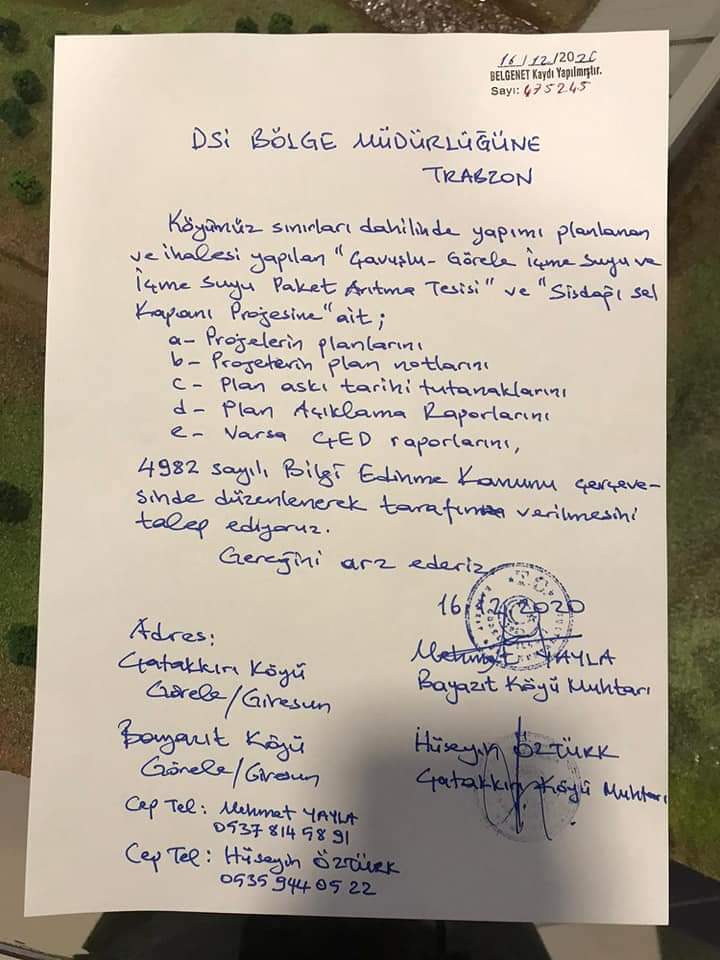 16/12/2020
BELGENET Kaydı Yapılmıştır.
Sayı: 475245
DSİ BÖLGE MÜDÜRLÜĞÜNE
TRABZON
Köyümüz sınırları dahilinde yapımı planlanan
ve ihalesi yapılan "Çavuşlu-Görele İçme Suyu ve
İçme Suyu Paket Arıtma Tesisi" ve "Sisdağı sel
Kapanı Projesine" ait;
a- Projelerin planlarını
b- Projelerin plan notlarını
c- Plan askı tarihi tutanaklarını
d- Plan Açıklama Raporlarını
e- Varsa ÇED raporlarını,
4982 sayılı Bilgi Edinme Kanunu çerçeve-
sinde düzenlenerek tarafıma verilmesini
talep ediyoruz.
Gereğini arz ederiz
16.12.2020
Adres:
Mehmet YAYLA
Çatakkırı Köyü
Bayazıt Köyü Muhtarı
Görele/Giresun
Bayazıt Köyü
Hüseyin ÖZTÜRK
Görele/Giresun
Çatakkırı Köyü Muhtarı
Cep Tel: Mehmet YAYLA
0537 814 58 91
Cep Tel: Hüseyin ÖZTÜRK
0535 944 05 22